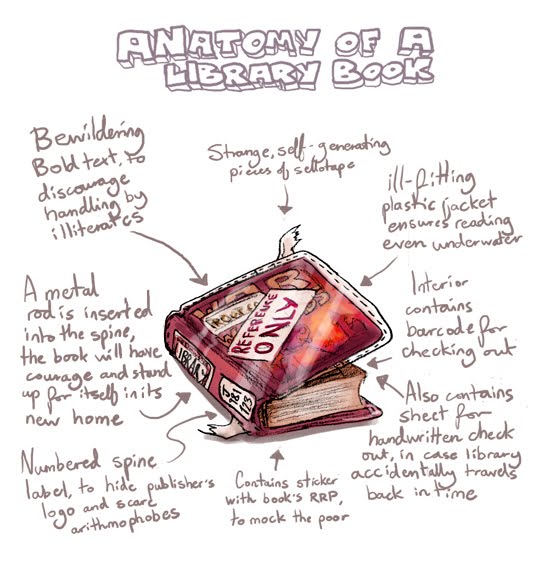 ANATOMY OF A
LIBRARY BOOK
Bewildering
Bold text, to
discourage
handling by
illiterates
Strange, self-generating
pieces of sellotape
ill-fitting
plastic jacket
ensures reading
even underwater
A metal
rod is inserted
into the spine,
the book will have
courage and stand
up for itself in its
new home
Interior
contains
barcode for
checking out
Also contains
sheet for
handwritten check
out, in case library
accidentally travels
back in time
Numbered spine
label, to hide publisher's
logo and scare
arithmophobes
Contains sticker
with book's RRP,
to mock the poor
REFERENCE
ONLY
LIBRARY